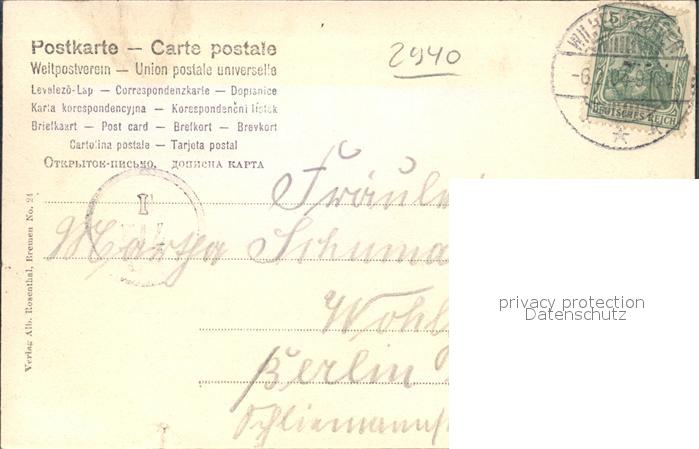 Postkarte — Carte postale
Weltpostverein — Union postale universelle
Levelező-Lap — Correspondenzkarte — Dopisnice
Karta korespondencyjna — Korespondenční lístek
Briefkaart — Post card — Brefkort — Brevkort
Cartolina postale — Tarjeta postal
Открытое-письмо, дописна карта
2940
5
DEUTSCHES REICH
1
Fräulei
Martha Schuma
Wohlg
Berlin
Schliemannst
Verlag Alb. Rosenthal, Bremen No. 24
privacy protection
Datenschutz